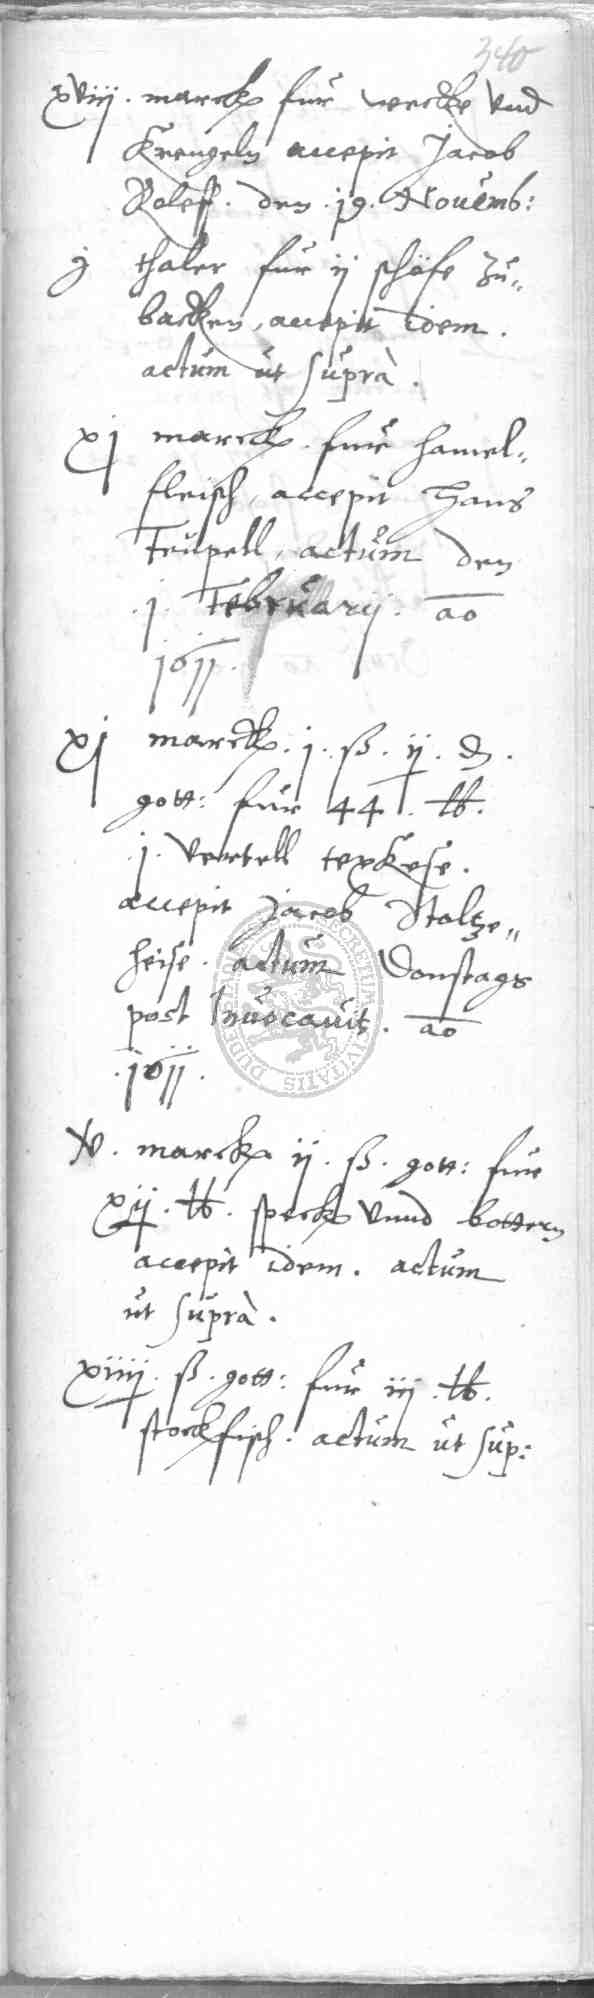 340
xviij. marck für wecke vnd
Krengeln accepit Jacob
Roleff. den. 19. Nouemb:
j thaler für ij schöfe zu„
backen, accepit idem.
actum ut suprà.
xj marck. für hamel„
fleisch, accepit Hans
Teupell, actum den
.j. Februarij. ao
1611.
xj marck. j. ß. ij. d.
gott: für 44. lb.
.j. vertell texkese.
accepit Jacob Stoltze„
heise. actum Donstags
post Inuocauit. ao
.1611.
v. marck ij. ß. gott: für
xij. lb. speck vnnd bottern
accepit idem. actum
ut suprà.
xiiij. ß. gott: für iij. lb.
stockfisch. actum ut sup:
SECRETUM CIVITATIS DUDE